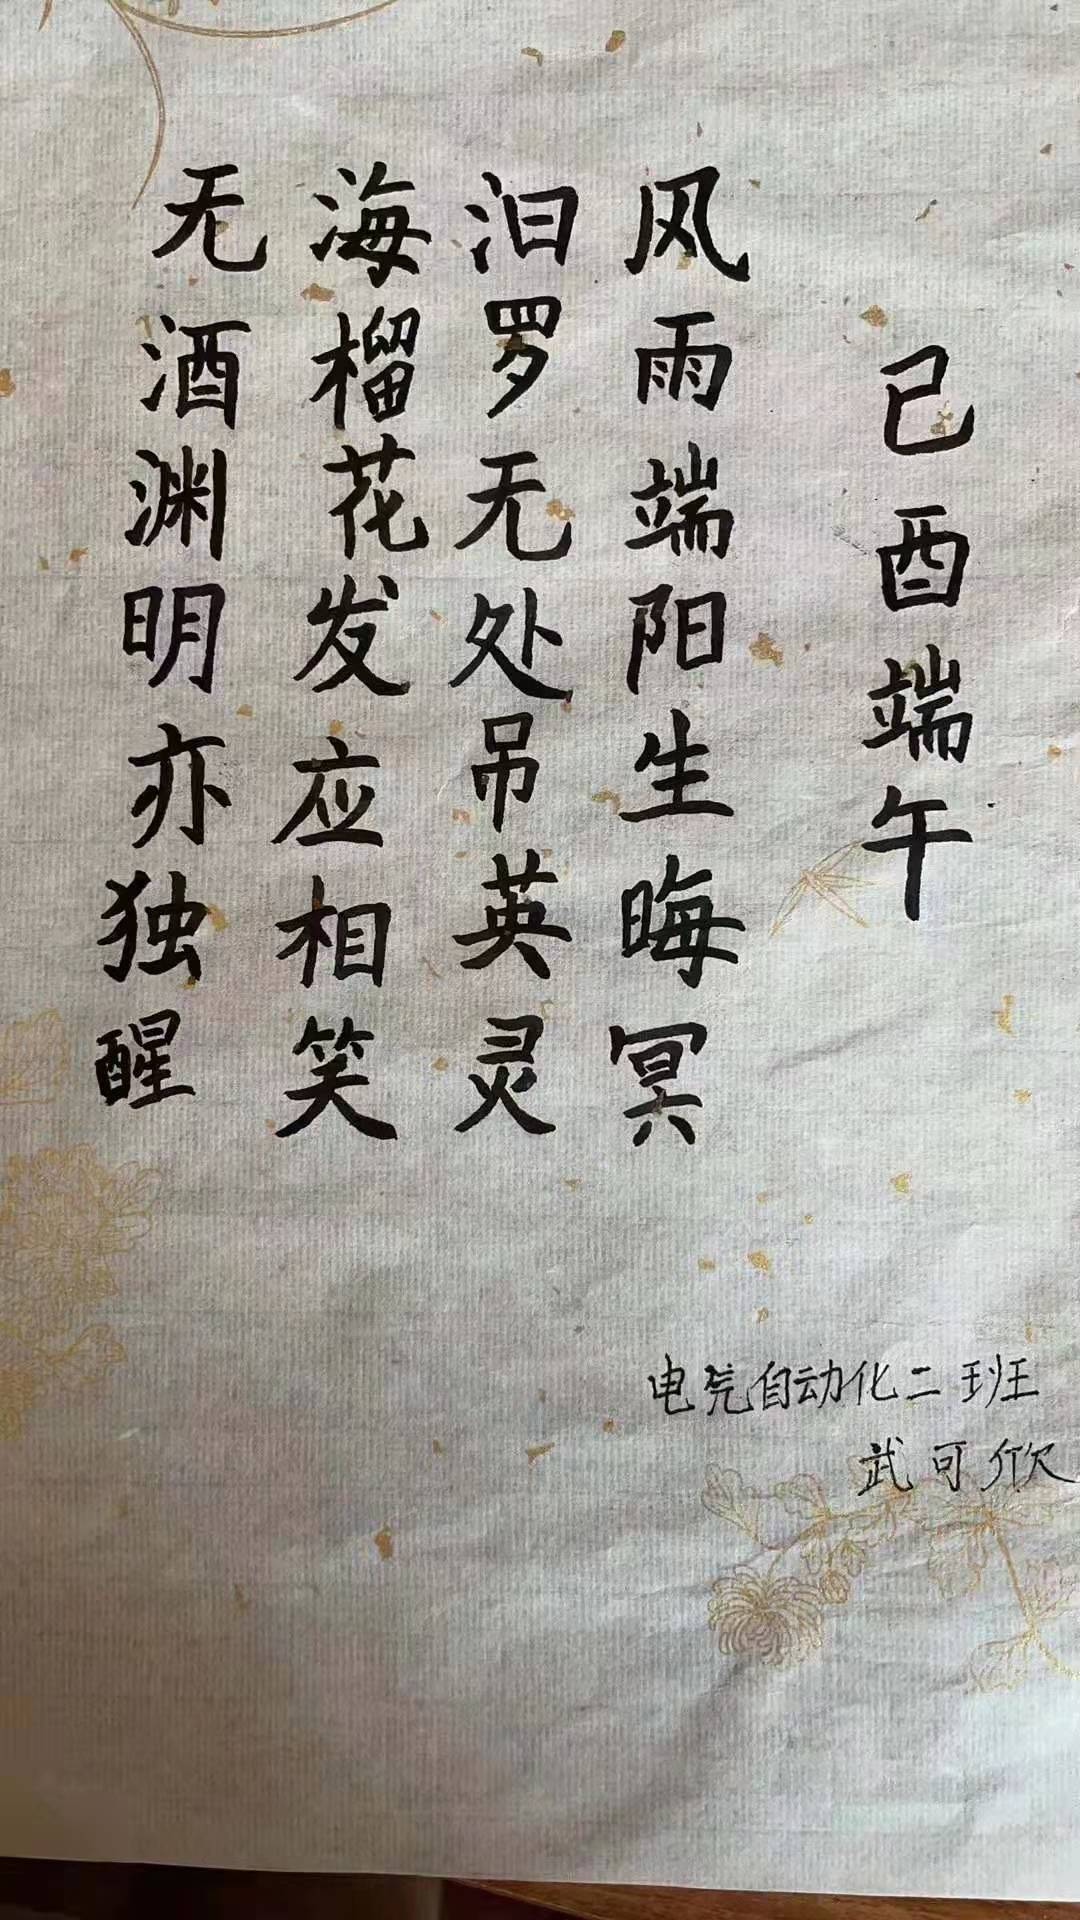 己酉端午
风雨端阳生晦冥
汨罗无处吊英灵
海榴花发应相笑
无酒渊明亦独醒
电气自动化二班
武可欣